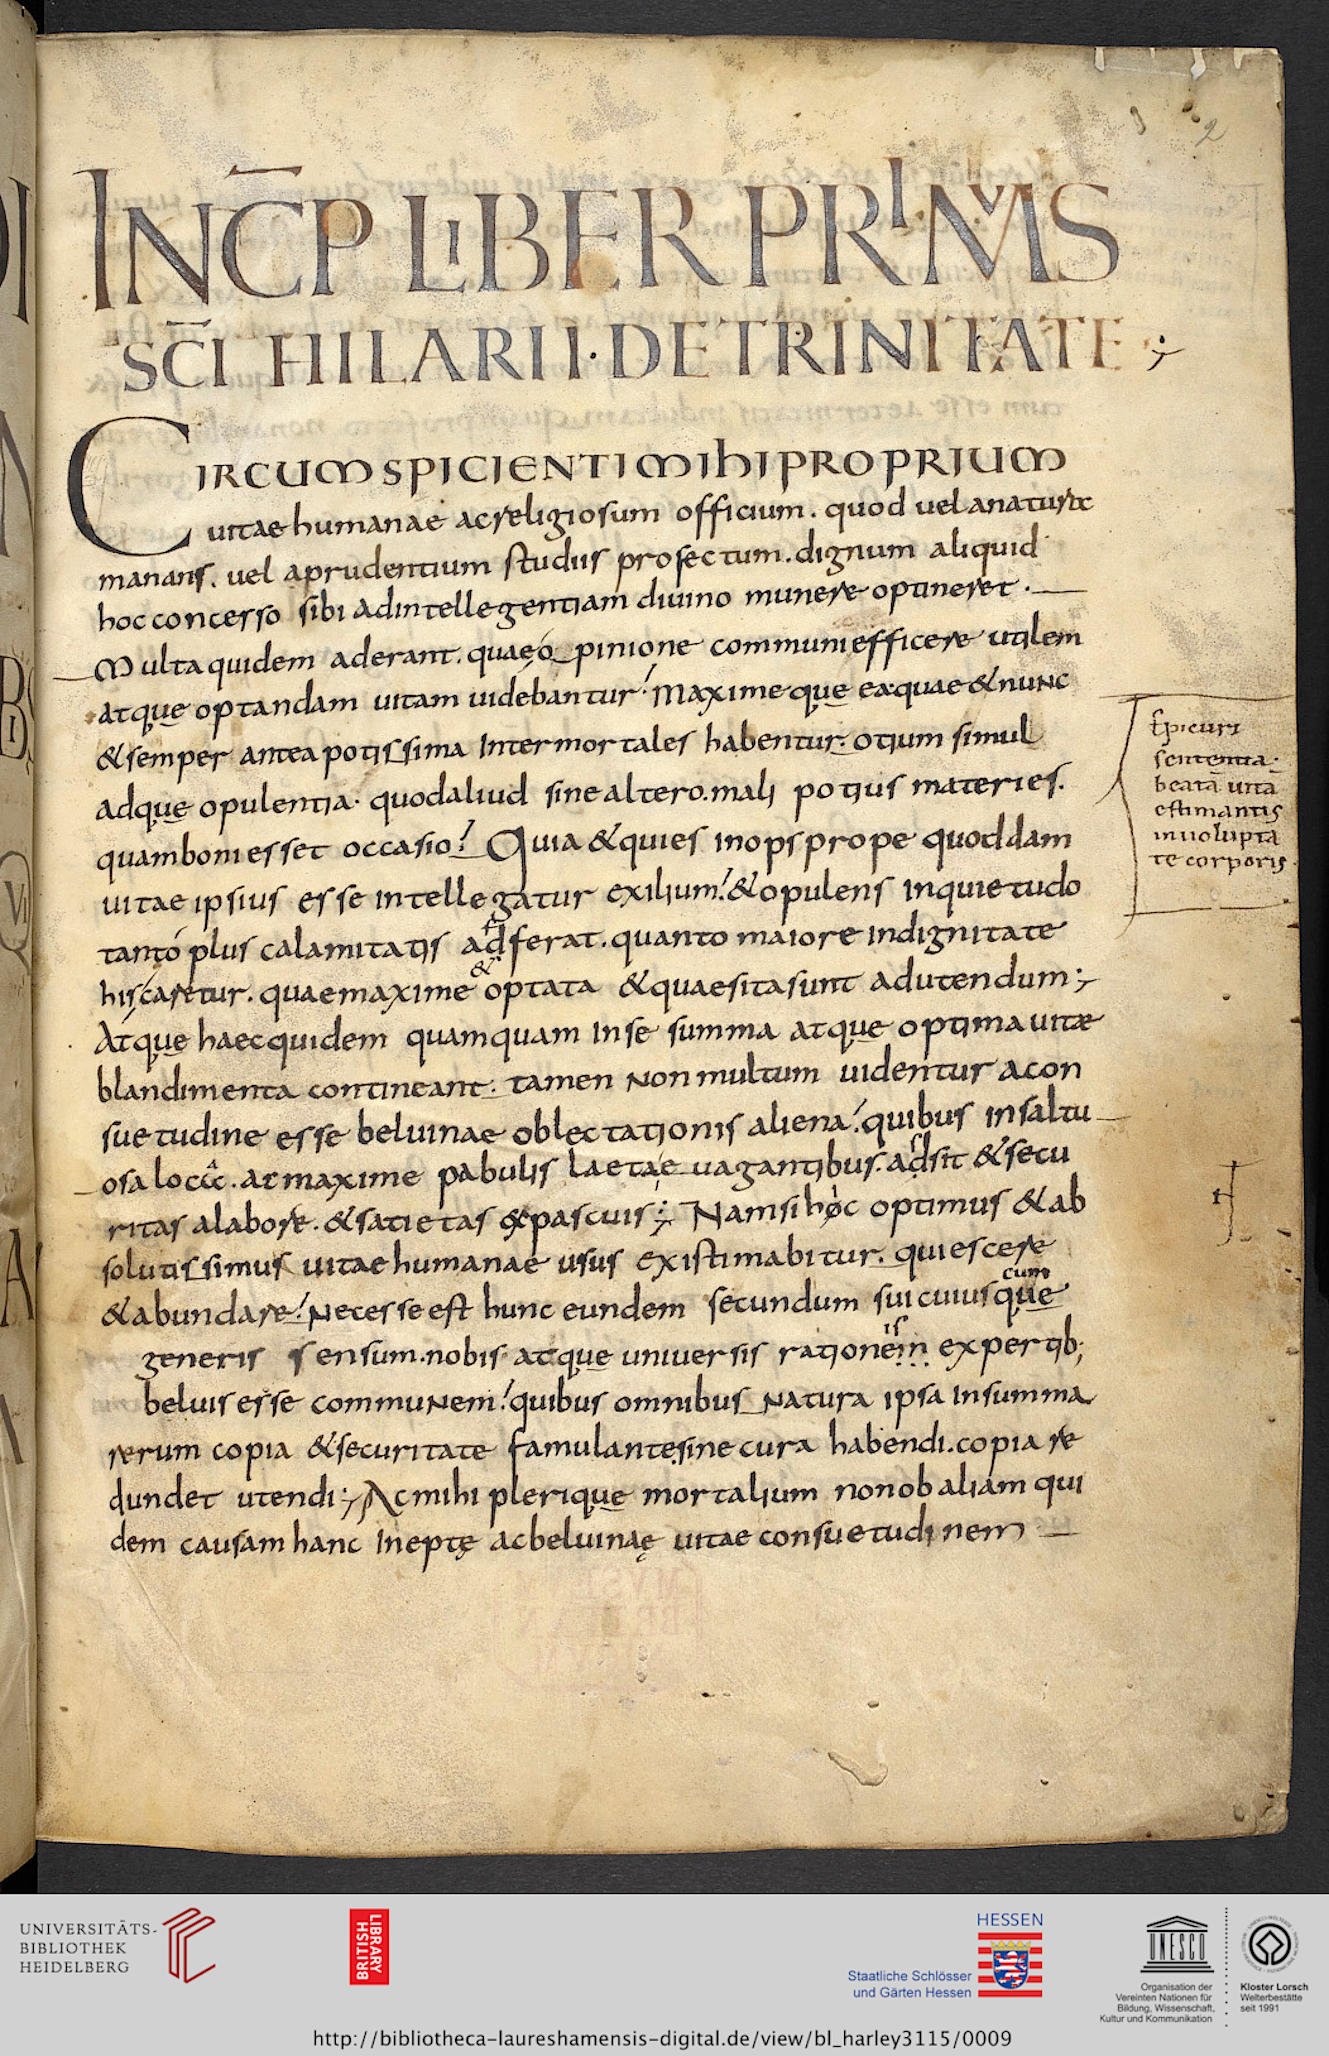 2
INC̅P LIBER PRIMUS
SC̅I HILARII·DE TRINITATE;
CIRCUMSPICIENTI MIHI PROPRIUM
uitae humanae ac religiosum officium. quod uel a naturae
manans. uel a prudentium studiis profectum. dignum aliquid
hoc concesso sibi ad intellegentiam diuino munere optineret.
Multa quidem aderant. quae opinione communi efficere utilem
atque optandam uitam uidebantur. Maximeque ea·quae & nunc
& semper antea potissima Inter mortales habentur. otium simul
adque opulentia· quod aliud sine altero. mali potius materies.
quam boni esset occasio. Quia & quies inops prope quoddam
uitae ipsius esse intellegatur exilium. & opulens inquietudo
tanto plus calamitatis adferat. quanto maiore indignitate
his caretur. quae maxime & optata & quaesita sunt ad utendum;
Atque haec quidem quamquam In se summa atque optima uitæ
blandimenta contineant. tamen Non multum uidentur a con
suetudine esse beluinae oblectationis aliena. quibus in saltu
osa loca. ac maxime pabulis laetae uagantibus. adsit & secu
ritas a labore. & satietas & pascuis; Nam si hoc optimus & ab
solutissimus uitae humanae usus existimabitur. quiescere
& abundare. Necesse est hunc eundem secundum sui cuiusque cum
generis sensum. nobis atque uniuersis rationem is expertib;
beluis esse commuNem. quibus omnibus Natura ipsa In summa
rerum copia & securitate famulante sine cura habendi. copia re
dundet utendi; Ac mihi plerique mortalium non ob aliam qui
dem causam hanc Ineptę ac beluinaę uitae consuetudinem
Epicuri
sententia·
beatā uita
estimantis
in uolupta
te corporis
UNIVERSITÄTS-
BIBLIOTHEK
HEIDELBERG
BRITISH
LIBRARY
HESSEN
Staatliche Schlösser
und Gärten Hessen
UNESCO
Organisation der
Vereinten Nationen für
Bildung, Wissenschaft,
Kultur und Kommunikation
Kloster Lorsch
Welterbestätte
seit 1991
http://bibliotheca-laureshamensis-digital.de/view/bl_harley3115/0009